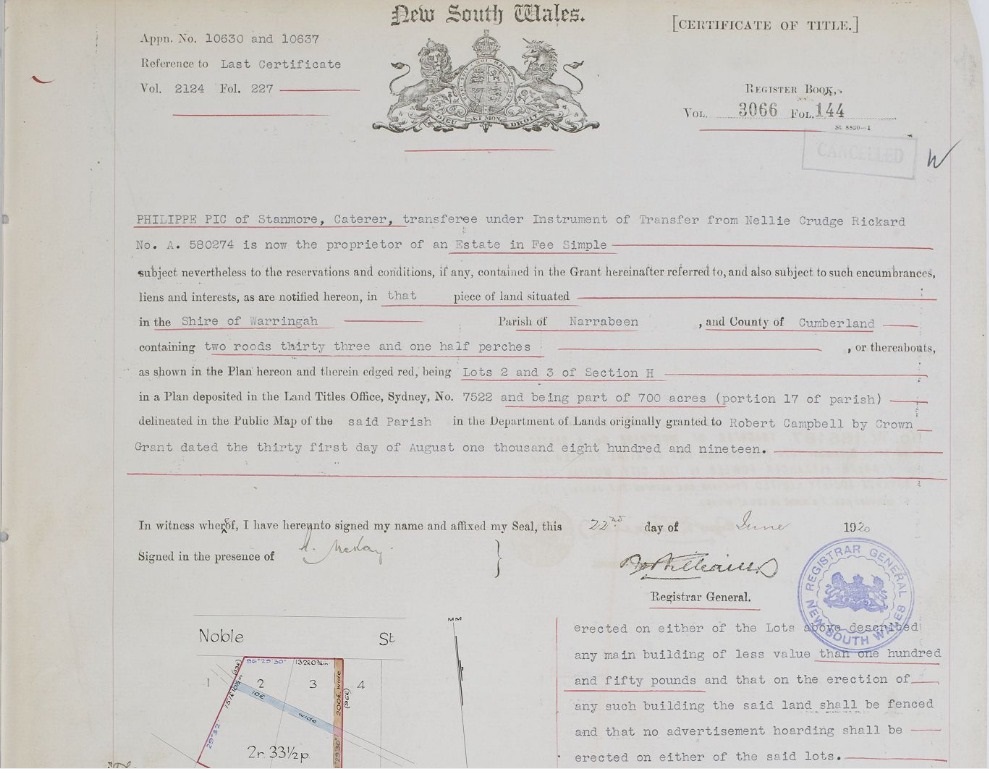 New South Wales.
[CERTIFICATE OF TITLE.]
Appn. No. 10630 and 10637
Reference to Last Certificate
Vol. 2124 Fol. 227
REGISTER BOOK,
VOL. 3066 FOL. 144
CANCELLED
W
PHILIPPE PIC of Stanmore, Caterer, transferee under Instrument of Transfer from Nellie Crudge Rickard
No. A. 580274 is now the proprietor of an Estate in Fee Simple
subject nevertheless to the reservations and conditions, if any, contained in the Grant hereinafter referred to, and also subject to such encumbrances,
liens and interests, as are notified hereon, in that piece of land situated
in the Shire of Warringah Parish of Narrabeen , and County of Cumberland
containing two roods thirty three and one half perches , or thereabouts,
as shown in the Plan hereon and therein edged red, being Lots 2 and 3 of Section H
in a Plan deposited in the Land Titles Office, Sydney, No. 7522 and being part of 700 acres (portion 17 of parish)
delineated in the Public Map of the said Parish in the Department of Lands originally granted to Robert Campbell by Crown
Grant dated the thirty first day of August one thousand eight hundred and nineteen.
In witness whereof, I have hereunto signed my name and affixed my Seal, this 22nd day of June 1920
Signed in the presence of A. McKay.
Registrar General.
REGISTRAR GENERAL NEW SOUTH WALES
Noble St
1 2 3 4
10ft wide
2r. 33½p.
erected on either of the Lots above described
any main building of less value than one hundred
and fifty pounds and that on the erection of
any such building the said land shall be fenced
and that no advertisement hoarding shall be
erected on either of the said lots.